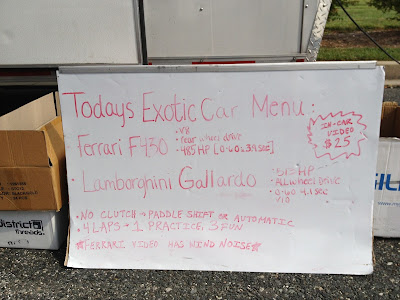 Todays Exotic Car Menu:
IN-CAR
VIDEO
$25
Ferrari F430
• V8
• rear wheel drive
• 485 HP [0-60: 3.9 sec]
Lamborghini Gallardo
• 513 HP
• ALL wheel Drive
• 0-60 4.1 sec
V10
• NO CLUTCH → PADDLE SHIFT OR AUTOMATIC
• 4 LAPS → 1 PRACTICE, 3 FUN
★FERRARI VIDEO HAS WIND NOISE★
district
threads.